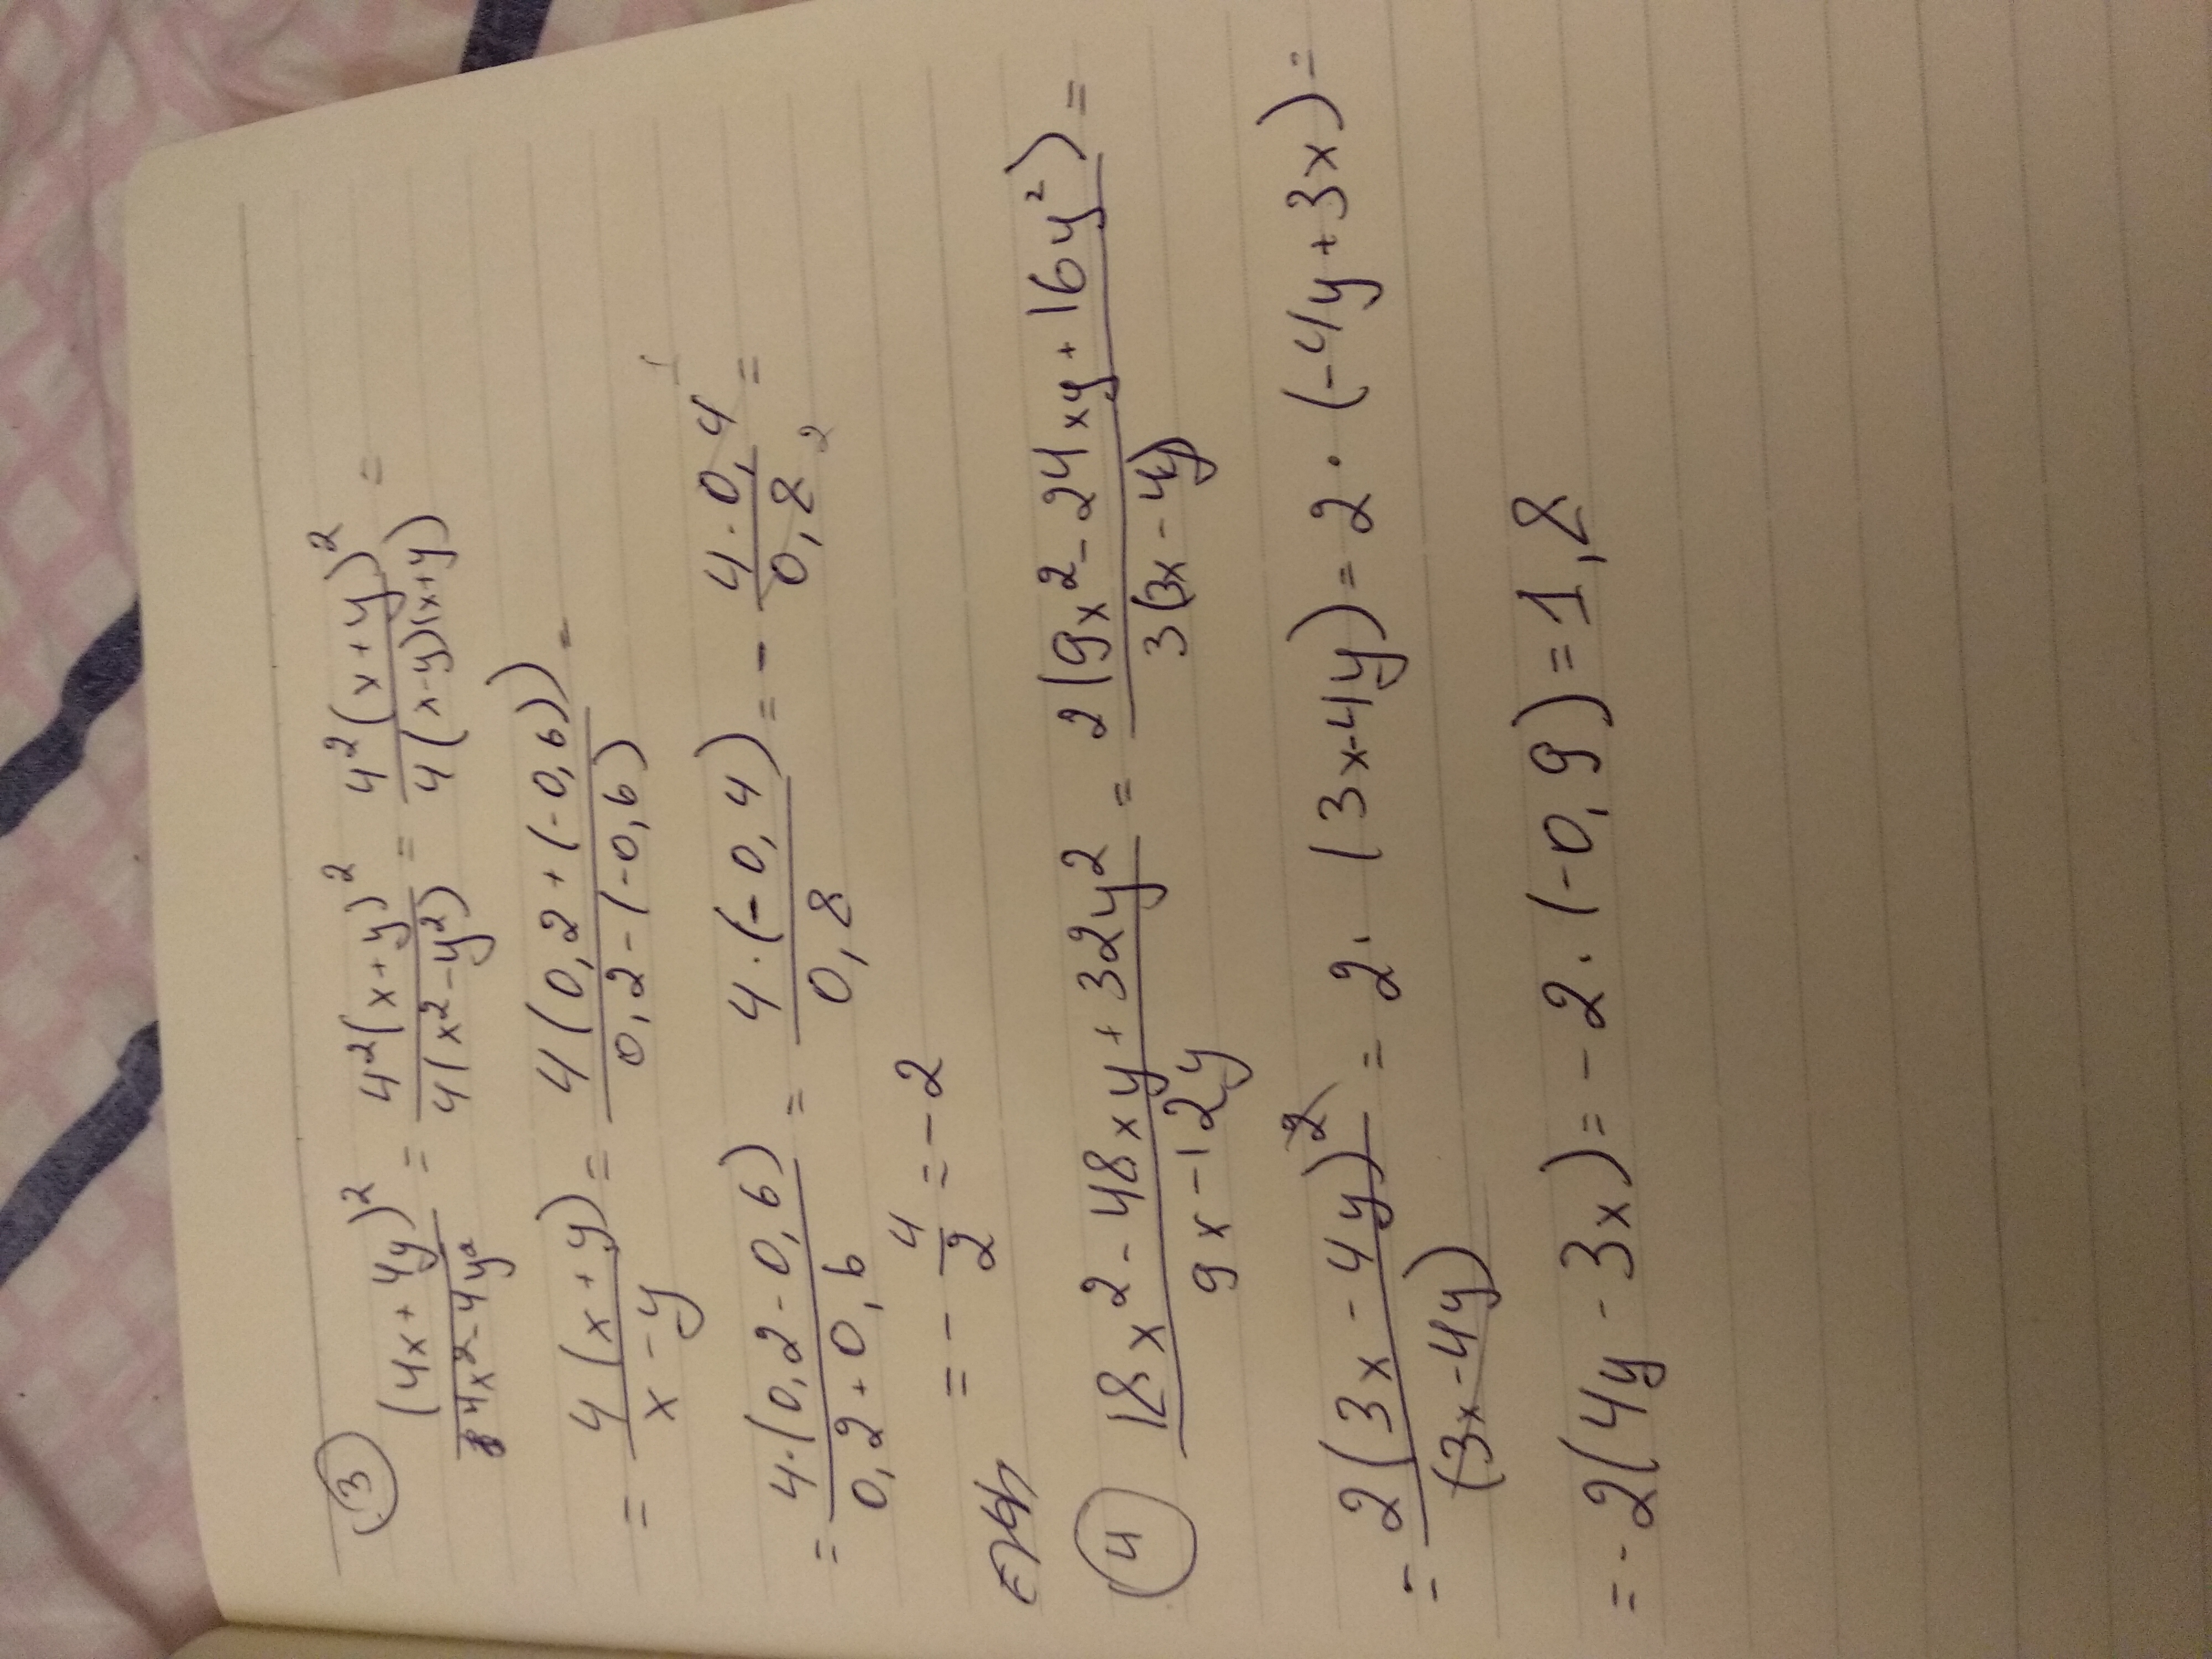 3 (4x+4y)²/(4x²-4y²) = 4²(x+y)²/4(x²-y²) = 4²(x+y)²/4(x-y)(x+y) =
= 4(x+y)/(x-y) = 4(0,2+(-0,6))/(0,2-(-0,6)) =
= 4·(0,2-0,6)/(0,2+0,6) = 4·(-0,4)/0,8 = - 4·0,4/0,8 =
= - 4/2 = -2
4 (18x²-48xy+32y²)/(9x-12y) = 2(9x²-24xy+16y²)/3(3x-4y) =
= 2(3x-4y)²/(3x-4y) = 2·(3x-4y) = 2·(-4y+3x) =
= -2(4y-3x) = -2·(-0,9) = 1,8